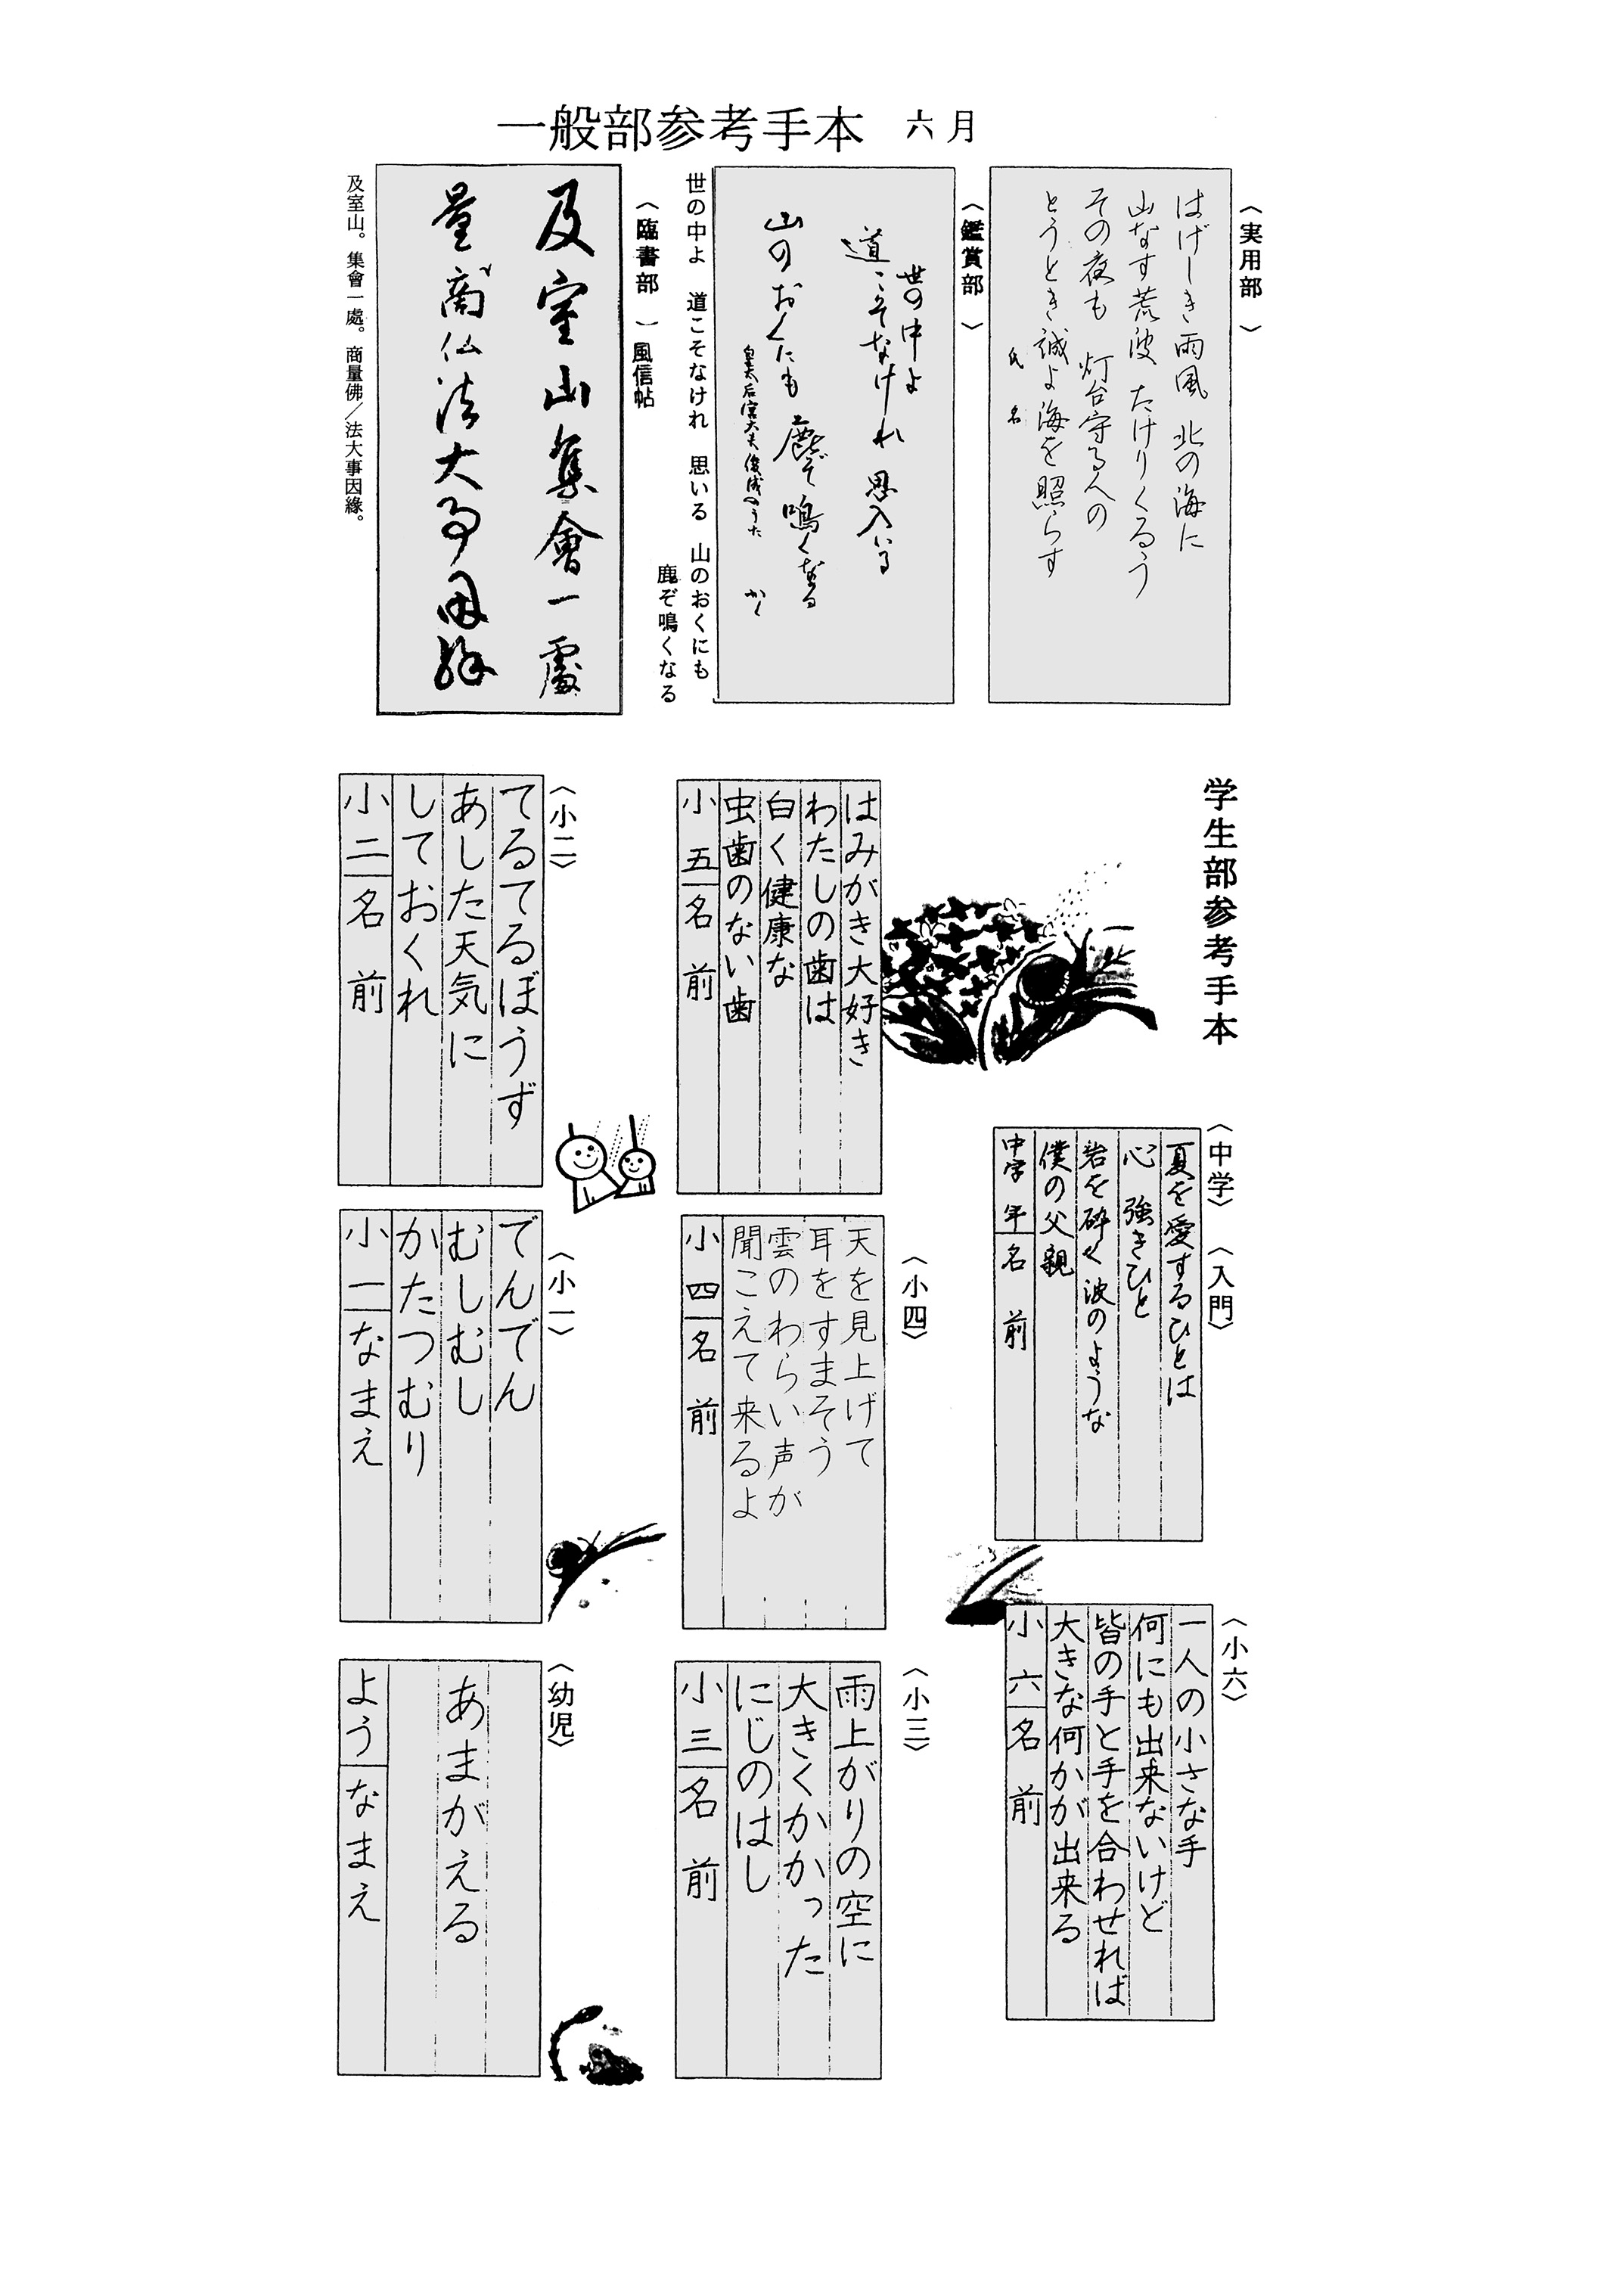 一般部参考手本　六月
〈実用部〉
はげしき雨風　北の海に
山なす荒波　たけりくるう
その夜も　灯台守る人の
とうとき誠よ　海を照らす
氏　名
〈鑑賞部〉
世の中よ
道こそなけれ　思入いる
山のおくにも　鹿ぞ鳴くなる
皇太后宮大夫俊成のうた　かく
世の中よ　道こそなけれ　思いる　山のおくにも
鹿ぞ鳴くなる
〈臨書部〉風信帖
及室山集會一處
量商仏法大事因縁
及室山。集會一處。商量佛／法大事因緣。
学生部参考手本
〈中学〉〈入門〉
夏を愛するひとは
心　強きひと
岩を砕く波のような
僕の父親
中学　年　名　前
〈小六〉
一人の小さな手
何にも出来ないけど
皆の手と手を合わせれば
大きな何かが出来る
小　六　名　前
はみがき大好き
わたしの歯は
白く健康な
虫歯のない歯
小　五　名　前
〈小四〉
天を見上げて
耳をすまそう
雲のわらい声が
聞こえて来るよ
小　四　名　前
〈小三〉
雨上がりの空に
大きくかかった
にじのはし
小　三　名　前
〈小二〉
てるてるぼうず
あした天気に
しておくれ
小　二　名　前
〈小一〉
でんでん
むしむし
かたつむり
小　一　なまえ
〈幼児〉
あまがえる
よう　なまえ